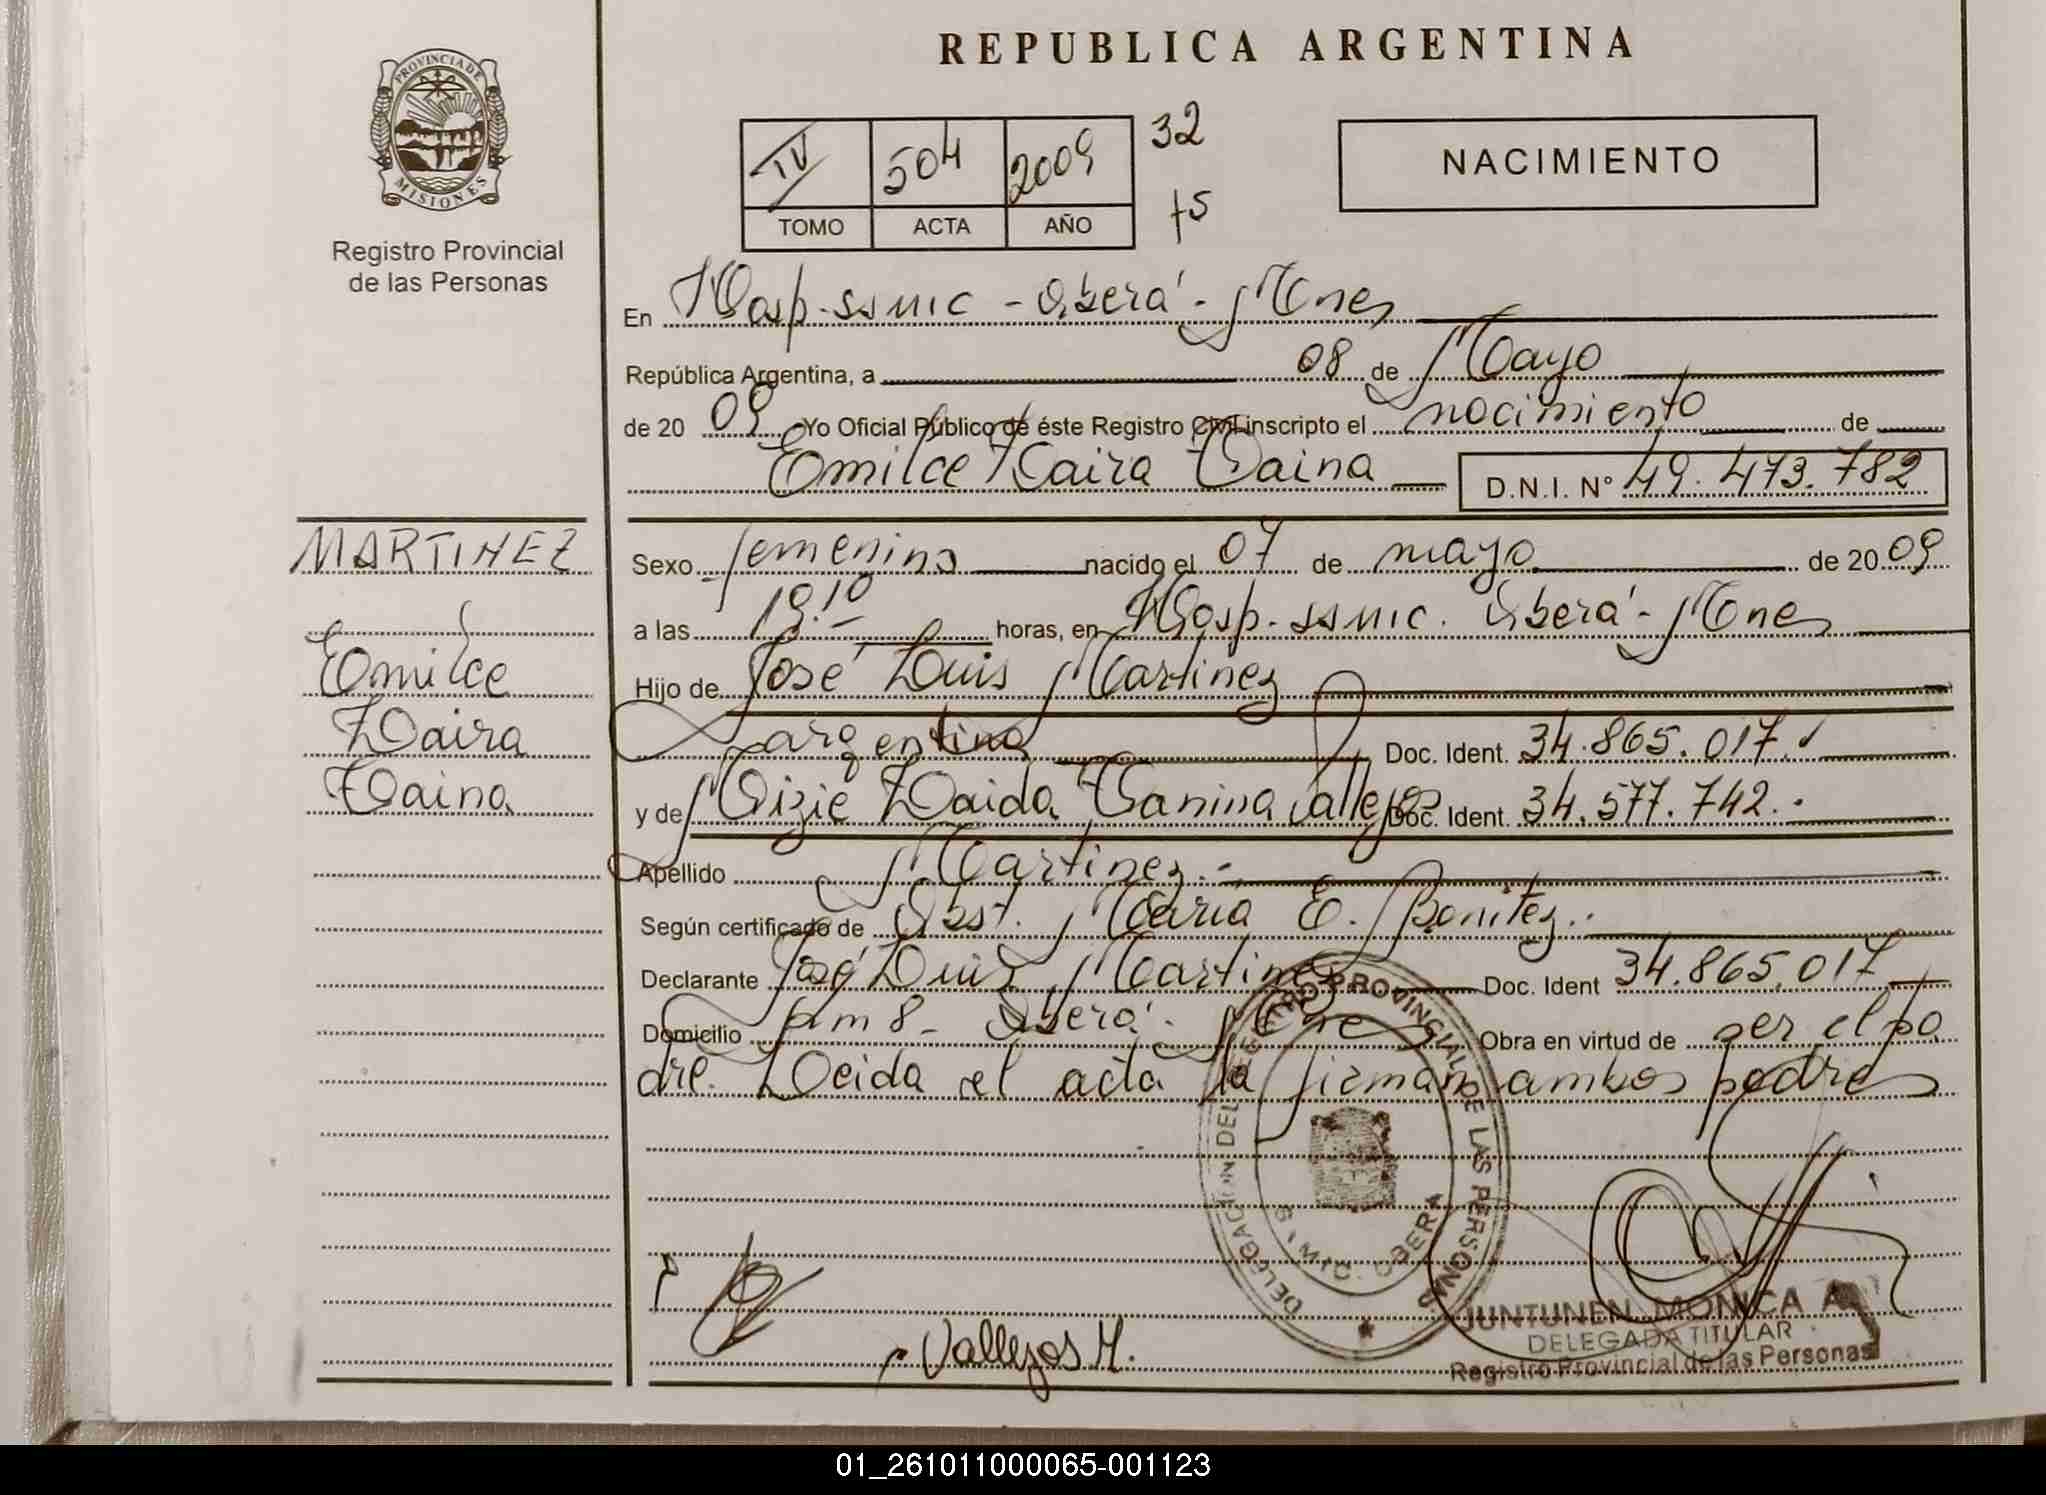 REPUBLICA ARGENTINA
PROVINCIA DE
MISIONES
Registro Provincial
de las Personas
IV 504 2009 32
TOMO ACTA AÑO 15
NACIMIENTO
En Hosp. SSMIC - Oberá - Mnes
República Argentina, a 08 de Mayo
de 20 09 Yo Oficial Público de éste Registro Civil inscripto el nacimiento de
Emilce Zaira Taina D.N.I. N° 49.473.782
MARTINEZ
Emilce
Zaira
Taina
Sexo femenino nacido el 07 de mayo de 20 09
a las 19.10 horas, en Hosp. SSMIC. Oberá - Mnes
Hijo de José Luis Martinez
argentino Doc. Ident. 34.865.017.
y de Zaida Vallejos Doc. Ident. 34.577.742.
Apellido Martinez.-
Según certificado de Obst. Maria E. Benitez.
Declarante José Luis Martinez Doc. Ident 34.865.017
Domicilio km 8 - Oberá - Mnes Obra en virtud de ser el pa
dre. Leida el acta la firman ambos padres
DELEGACION DEL REGISTRO PROVINCIAL DE LAS PERSONAS
S.S.M.I.C. OBERA
Vallejos M.
JUNTUNEN MONICA A.
DELEGADA TITULAR
Registro Provincial de las Personas
01_261011000065-001123